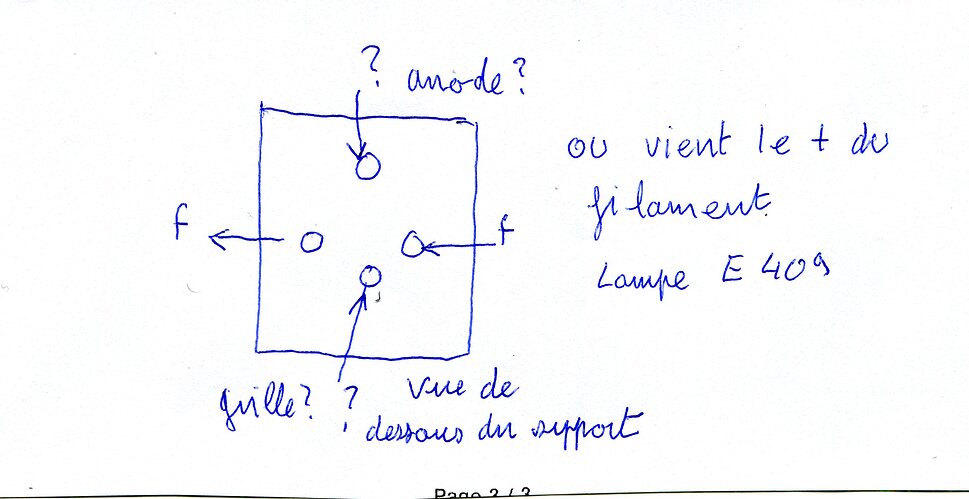 ? anode?
ou vient le + du
filament
Lampe E 409
f
f
grille? ?
vue de
dessous du support
Page 2 / 3